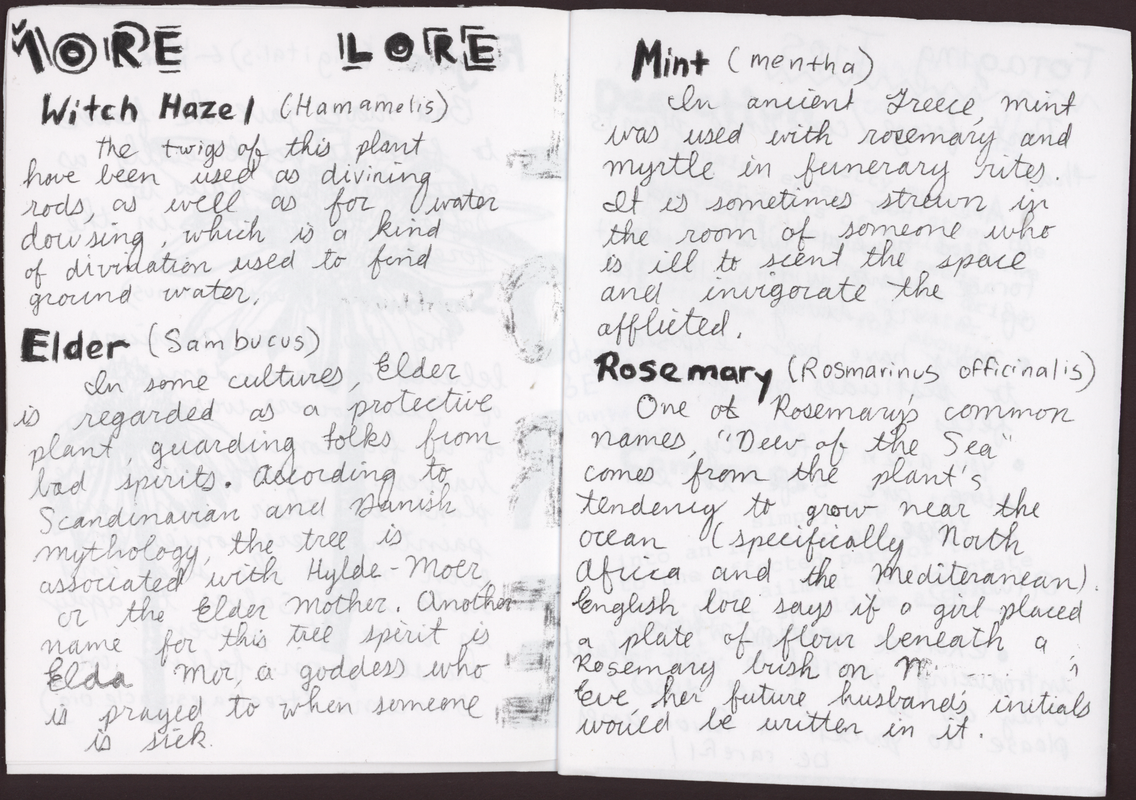 MORE LORE
Witch Hazel (Hamamelis)
the twigs of this plant
have been used as divining
rods, as well as for water
dowsing, which is a kind
of divination used to find
ground water.
Elder (Sambucus)
In some cultures, Elder
is regarded as a protective
plant guarding folks from
bad spirits. According to
Scandinavian and Danish
mythology, the tree is
associated with Hylde-Moer,
or the Elder Mother. Another
name for this tree spirit is
Elda Mor, a goddess who
is prayed to when someone
is sick.
Mint (mentha)
In ancient Greece, mint
was used with rosemary and
myrtle in funerary rites.
It is sometimes strewn in
the room of someone who
is ill to scent the space
and invigorate the
afflicted.
Rosemary (Rosmarinus officinalis)
One of Rosemary's common
names, "Dew of the Sea"
comes from the plant's
tendency to grow near the
ocean (specifically North
Africa and the Mediteranean).
English lore says if a girl placed
a plate of flour beneath a
Rosemary brish on
Eve, her future husband's initials
would be written in it.